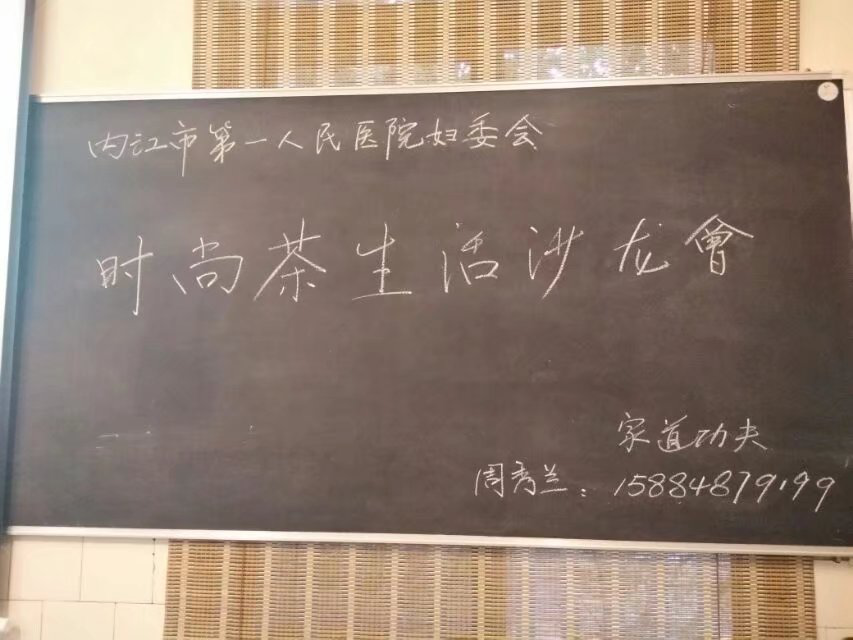 内江市第一人民医院妇委会
时尚茶生活沙龙會
家道功夫
周秀兰：15884879199